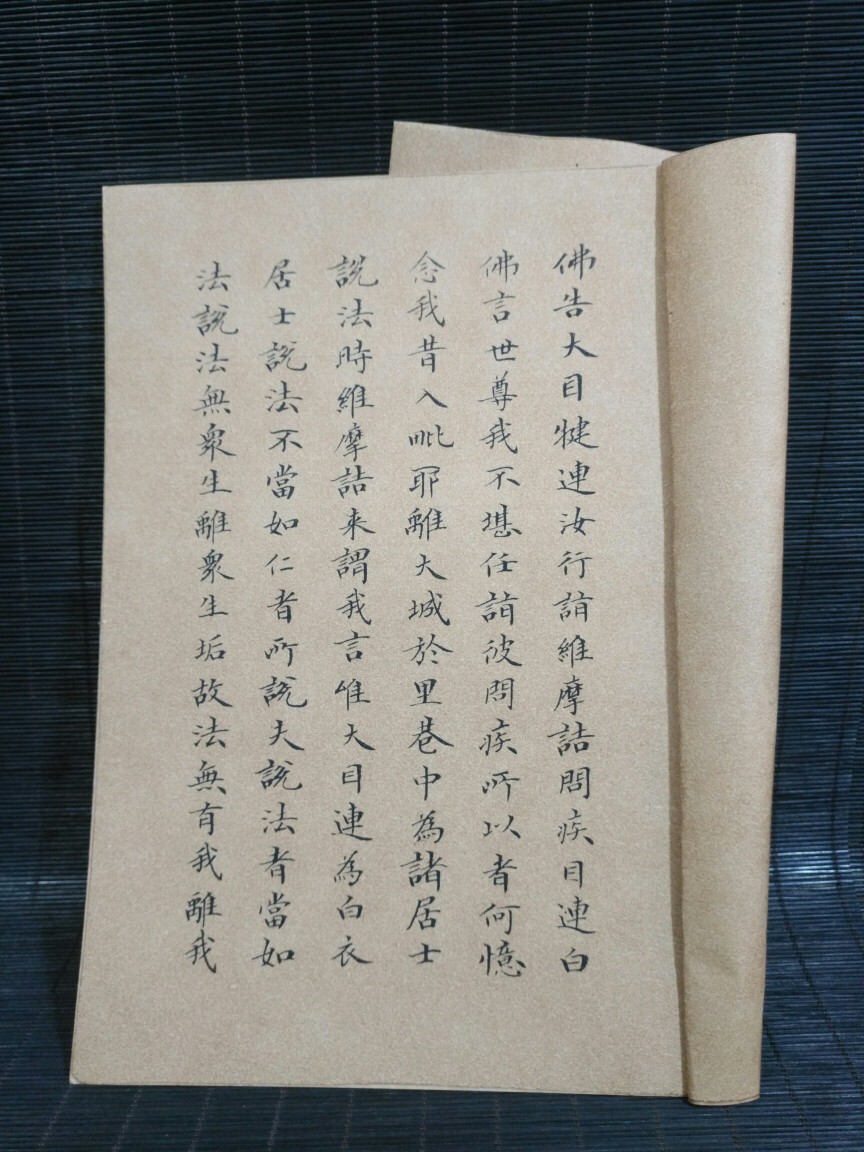 佛告大目犍連汝行詣維摩詰問疾目連白
佛言世尊我不堪任詣彼問疾所以者何憶
念我昔入毗耶離大城於里巷中為諸居士
說法時維摩詰来謂我言唯大目連為白衣
居士說法不當如仁者所說夫說法者當如
法說法無衆生離衆生垢故法無有我離我